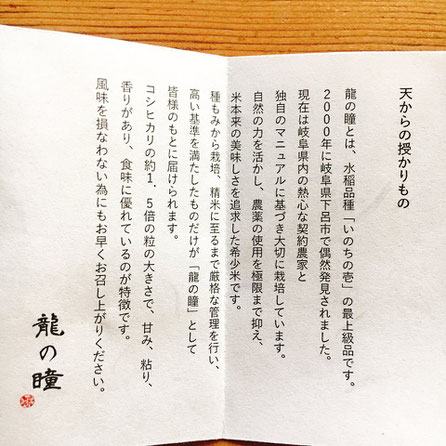 天からの授かりもの
龍の瞳とは、水稲品種「いのちの壱」の最上級品です。
2000年に岐阜県下呂市で偶然発見されました。
現在は岐阜県内の熱心な契約農家と
独自のマニュアルに基づき大切に栽培しています。
自然の力を活かし、農薬の使用を極限まで抑え、
米本来の美味しさを追求した希少米です。
種もみから栽培、精米に至るまで厳格な管理を行い、
高い基準を満たしたものだけが「龍の瞳」として
皆様のもとに届けられます。
コシヒカリの約1．5倍の粒の大きさで、甘み、粘り、
香りがあり、食味に優れているのが特徴です。
風味を損なわない為にもお早くお召し上がりください。
龍の瞳